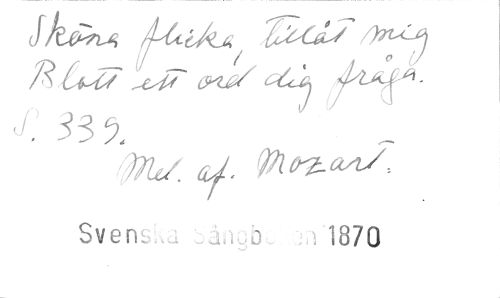 Sköna flicka, tillåt mig
Blott ett ord dig fråga.
S. 339.
Mel. af. Mozart.
Svenska Sångboken 1870